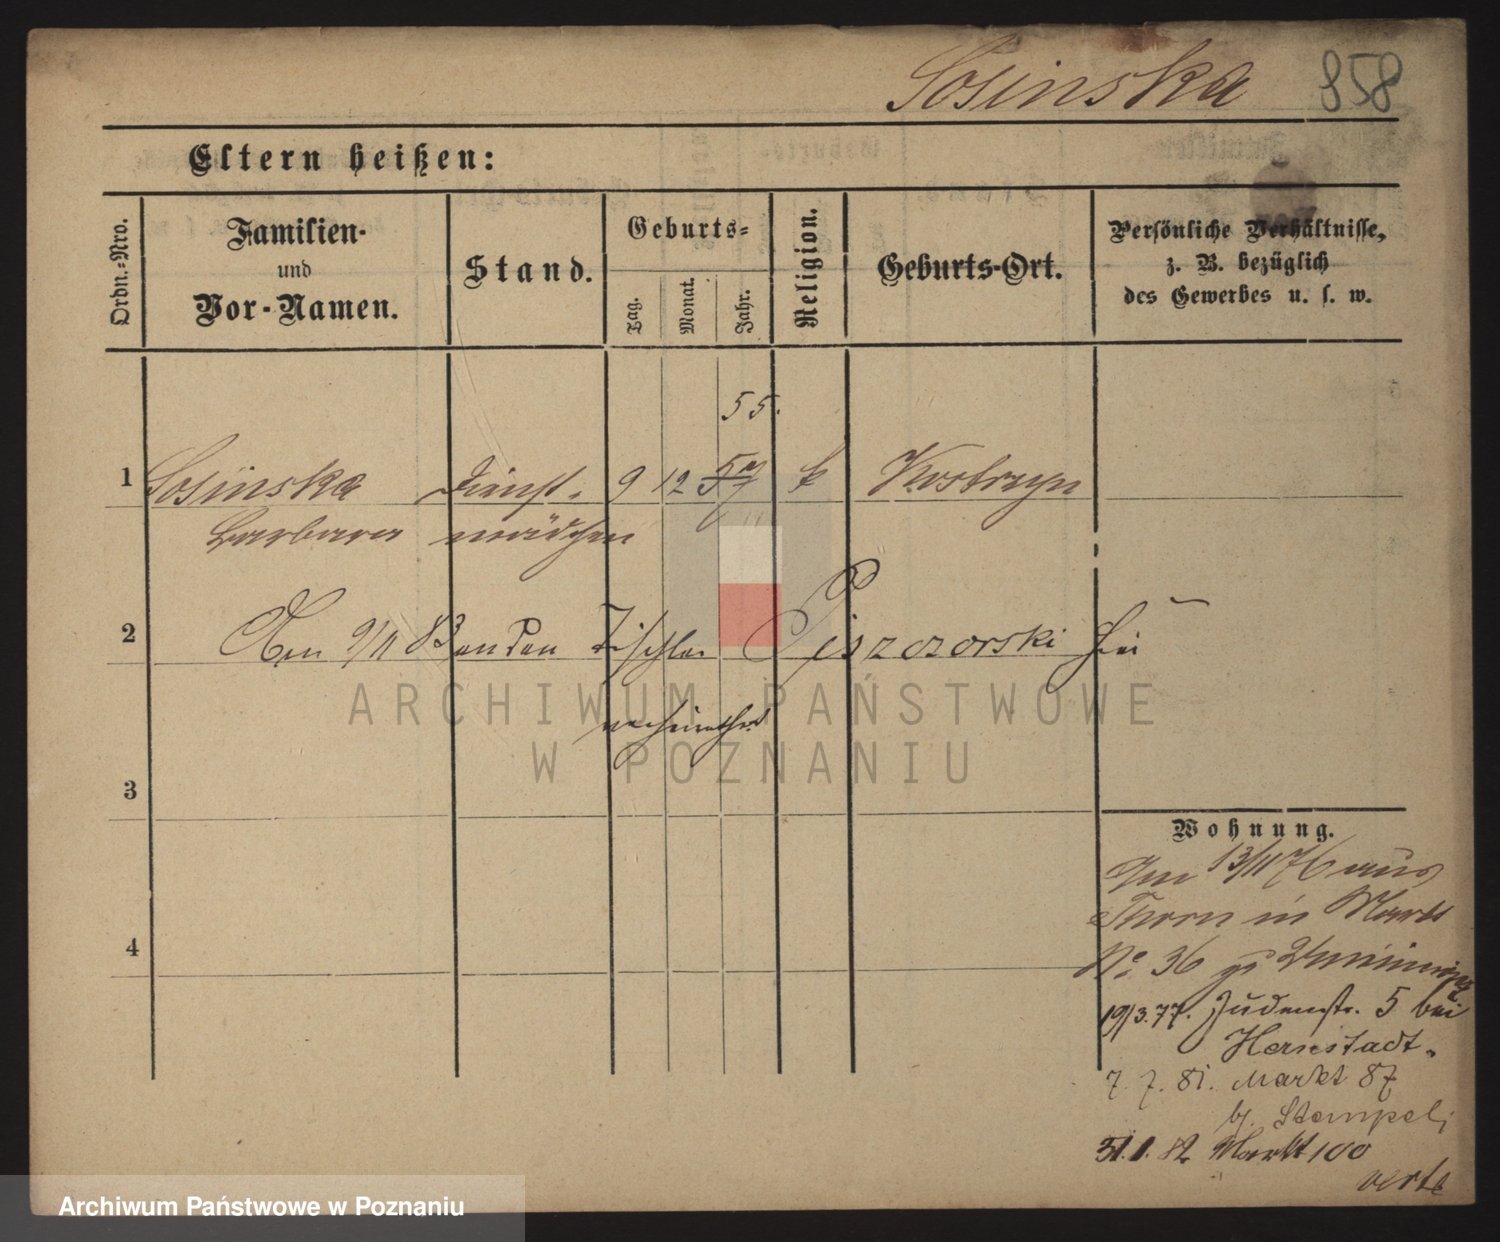 Sosinska 858
Eltern heißen:
Ordn.-Nro.
Familien-
und
Vor-Namen.
Stand.
Geburts-
Tag.
Monat.
Jahr.
Religion.
Geburts-Ort.
Persönliche Verhältnisse,
z. B. bezüglich
des Gewerbes u. s. w.
55.
1 Sosinska Dienst- 9 12 57 k Kostrzyn
Barbara mädchen
2 Am 9/11 83 an den Tischler Piszczorski hier
verheirathet
3
Wohnung.
Am 13/11 76 aus
Thorn in Markt
4
No. 36 zu
19/3.77. Judenstr. 5 bei
Hernstadt.
7. 7. 81. Markt 87
b. Stempel
31.1.82 Markt 100
verte
ARCHIWUM PAŃSTWOWE
W POZNANIU
Archiwum Państwowe w Poznaniu